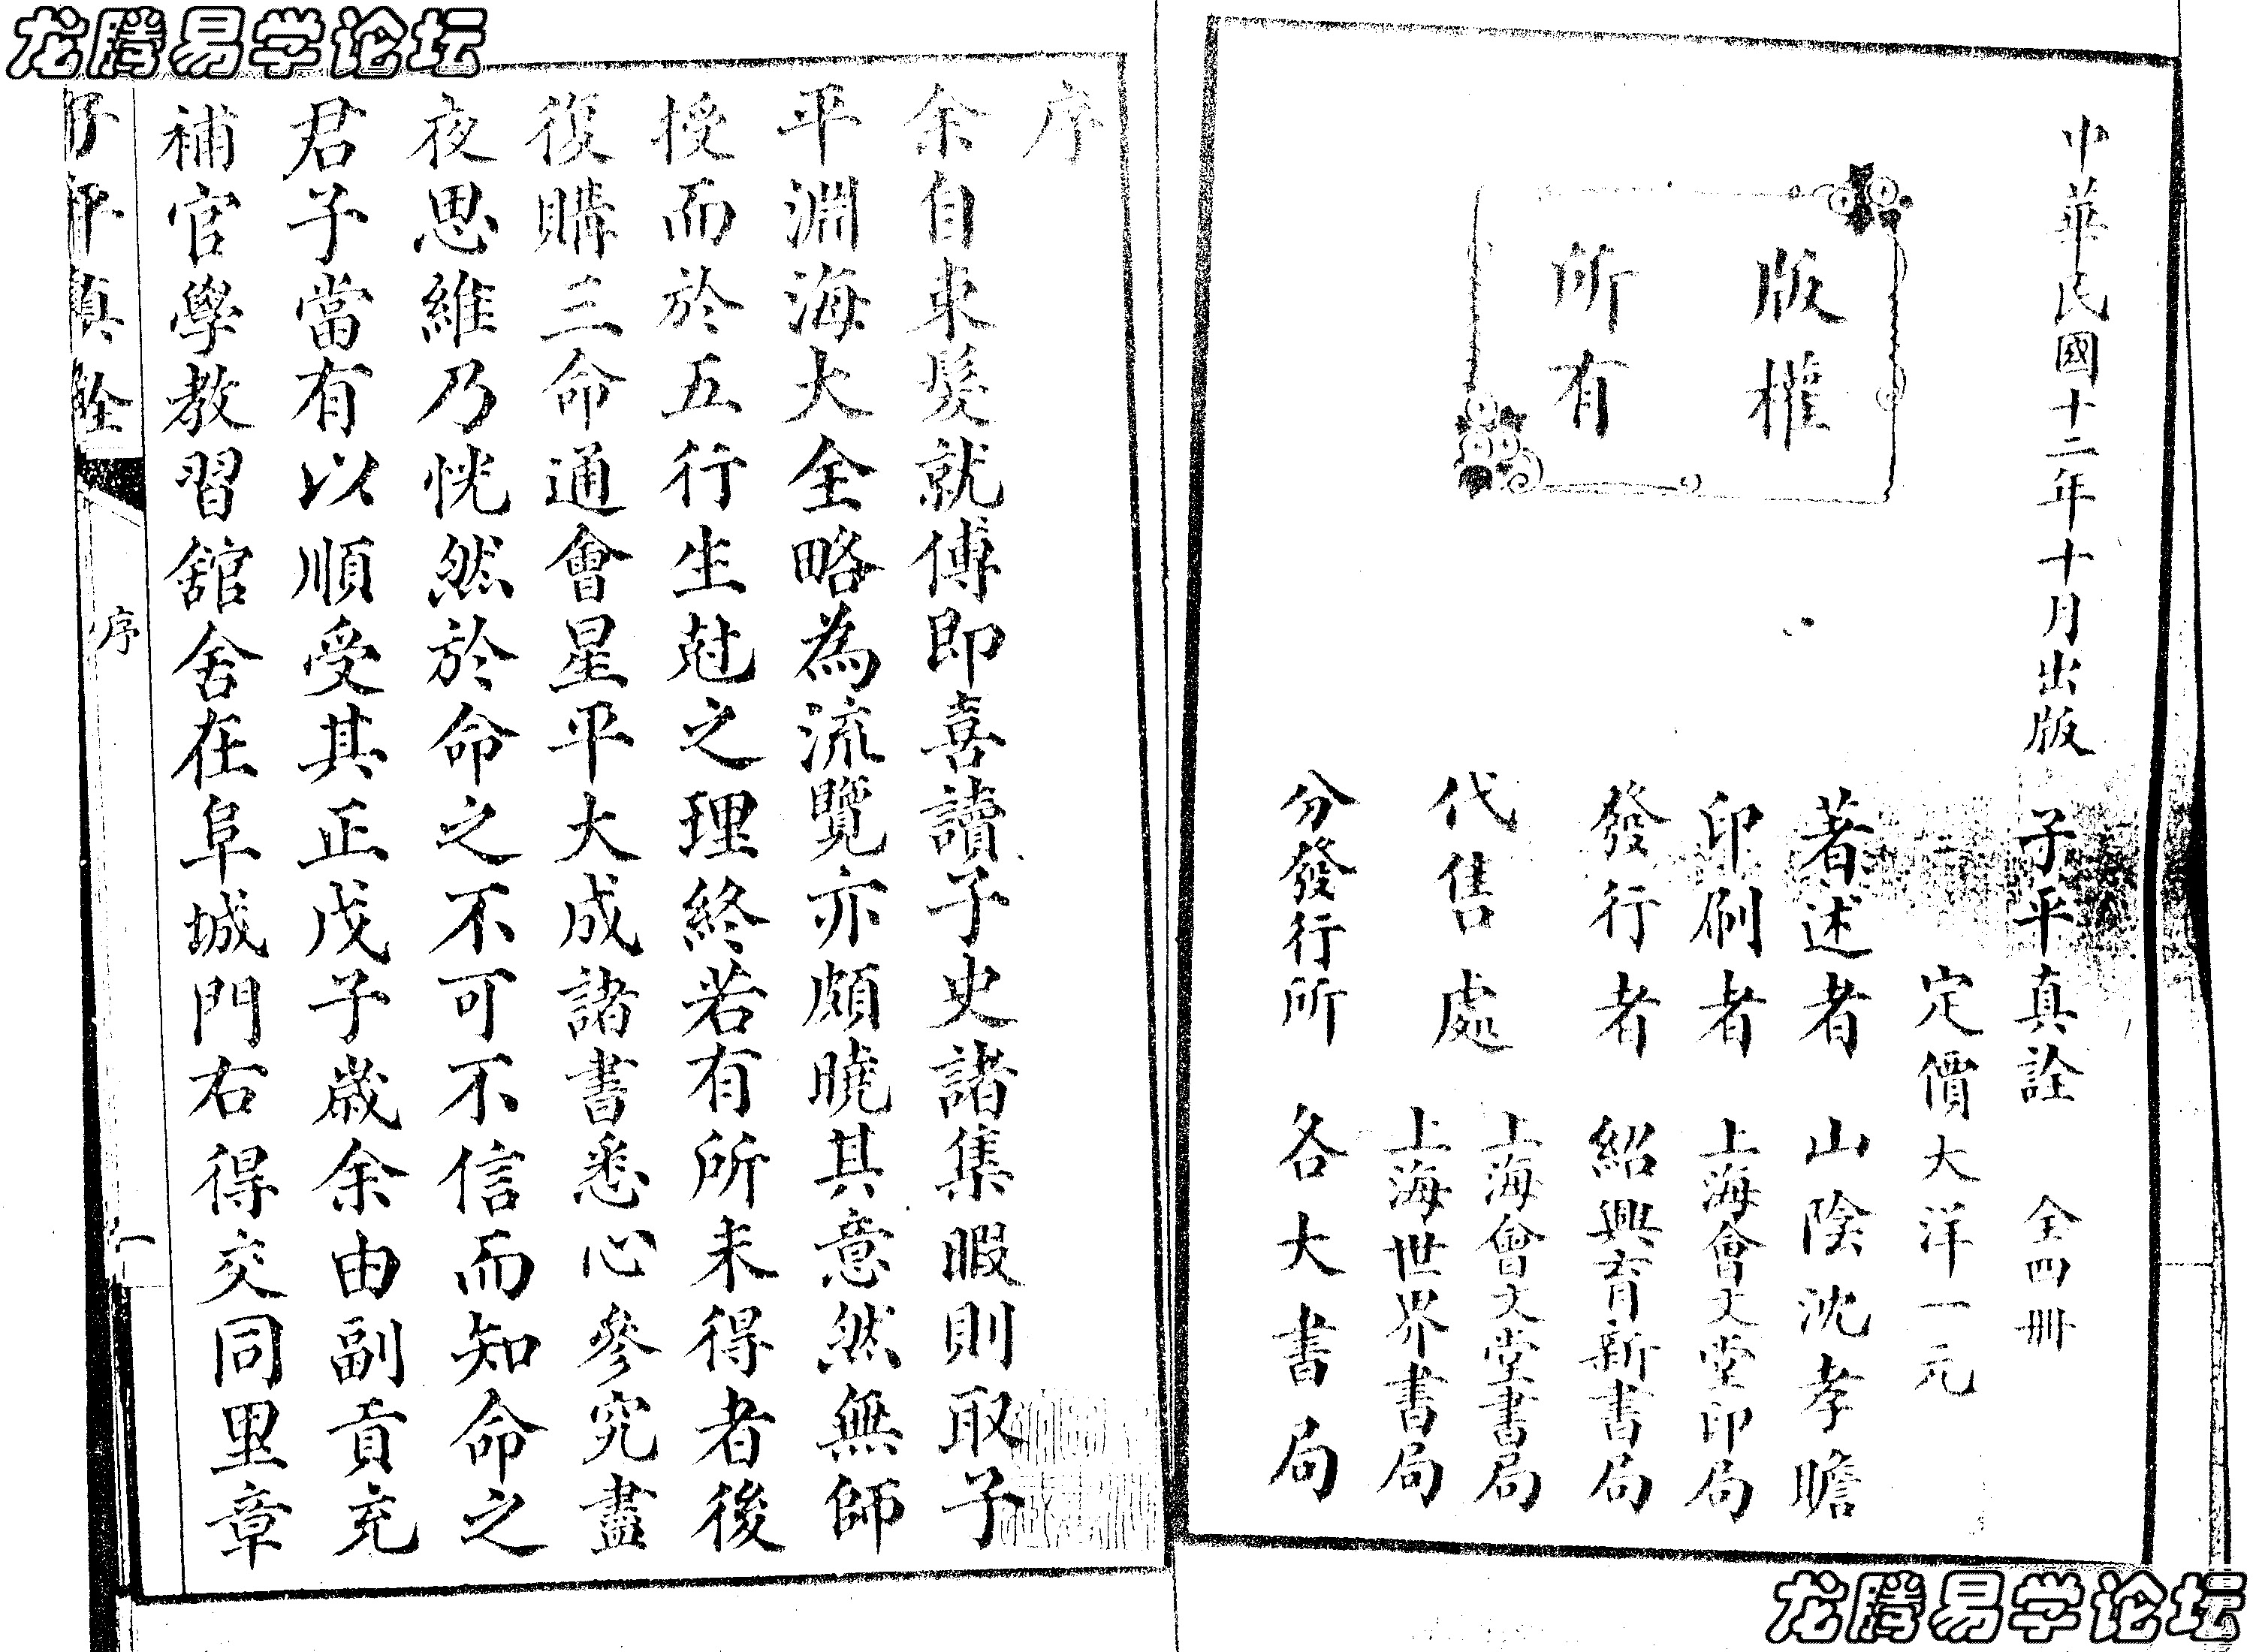 龙腾易学论坛
中華民國十二年十月出版
版權
所有
子平真詮 全四冊
定價大洋一元
著述者 山陰沈孝瞻
印刷者 上海會文堂印局
發行者 紹興育新書局
代售處 上海會文堂書局
上海世界書局
分發行所 各大書局
序
余自束髮就傅即喜讀子史諸集暇則取子
平淵海大全略為流覽亦頗曉其意然無師
授而於五行生尅之理終若有所未得者後
復購三命通會星平大成諸書悉心參究盡
夜思維乃恍然於命之不可不信而知命之
君子當有以順受其正戊子歲余由副貢充
補官學教習舘舍在阜城門右得交同里章
子平真詮
序
一
龙腾易学论坛